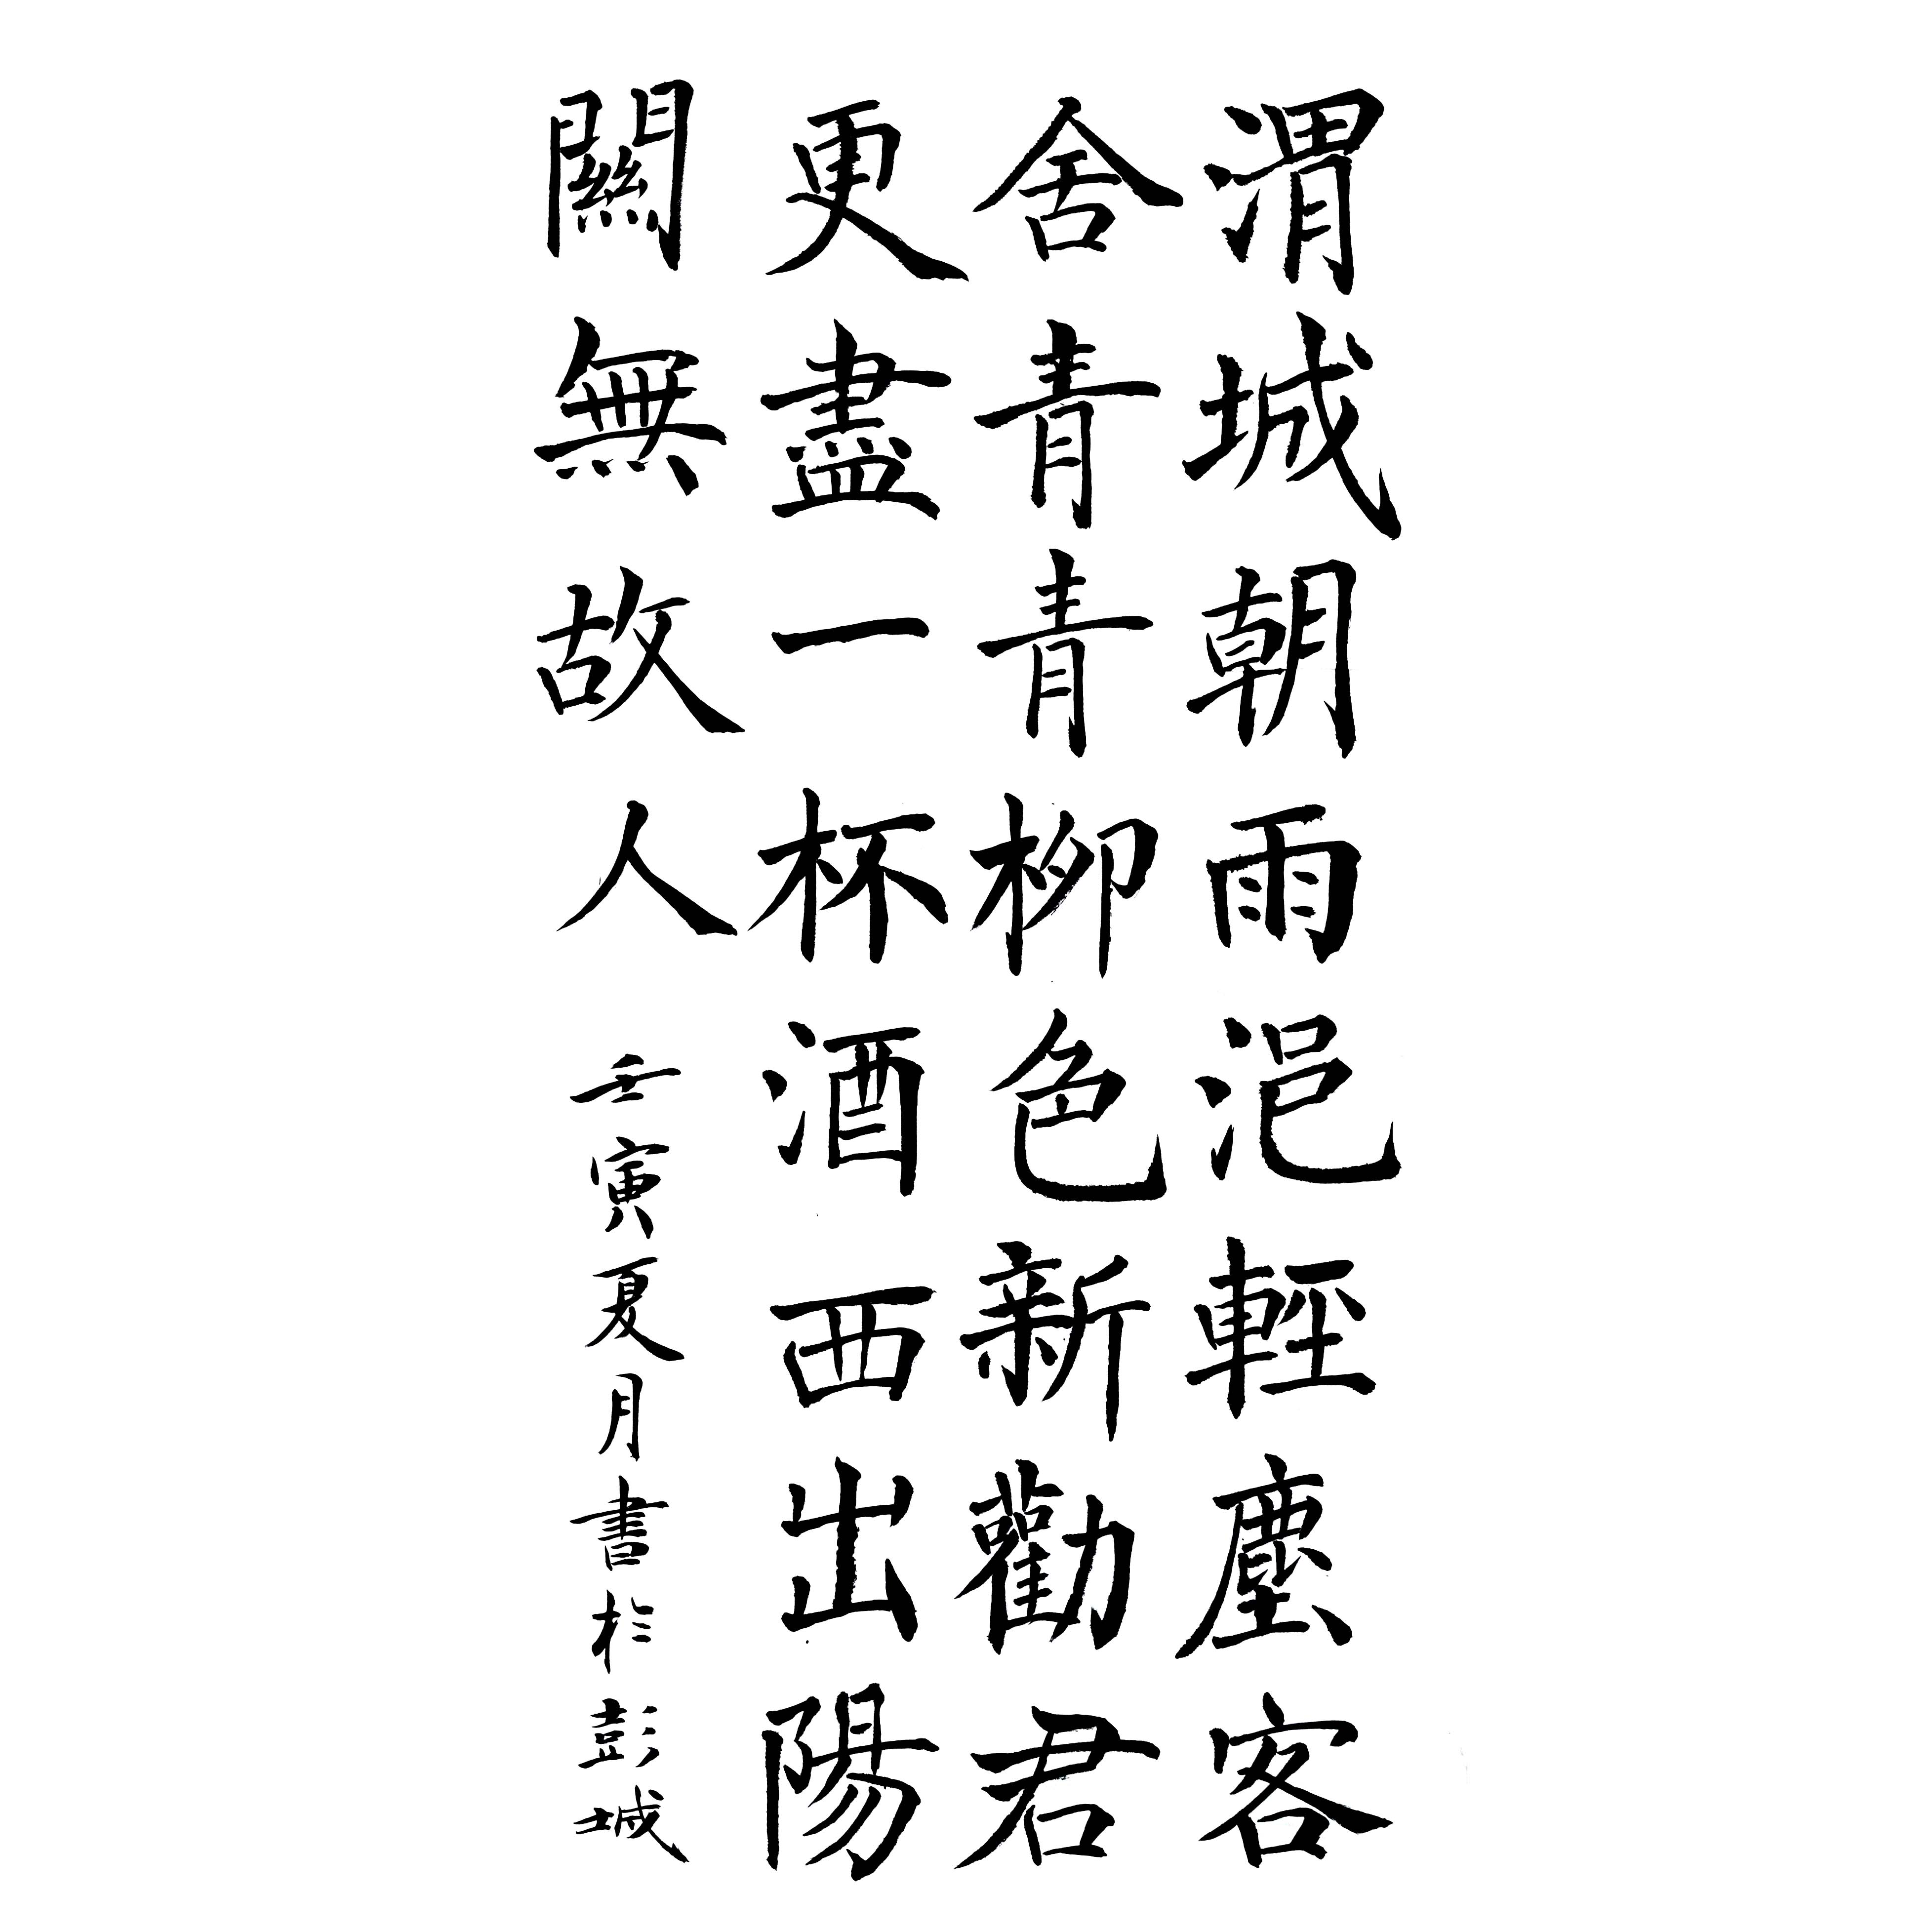 渭城朝雨浥輕塵客
舍青青柳色新勸君
更盡一杯酒西出陽
關無故人
壬寅夏月書於彭城